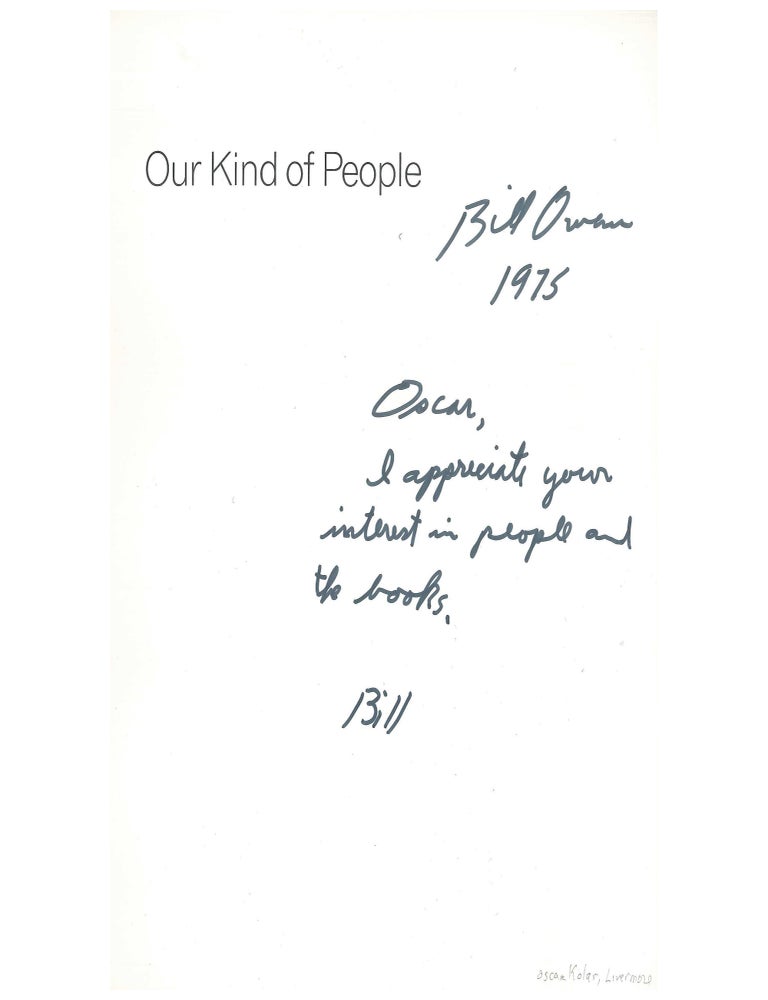 Our Kind of People
Bill Owens
1975
Oscar,
I appreciate your
interest in people and
the books.
Bill
Oscar Kolar, Livermore